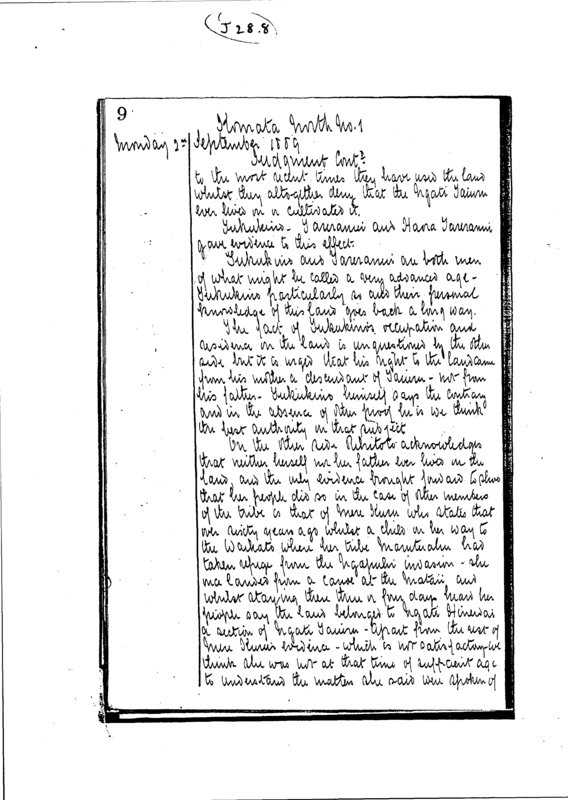 J 28.8
9
Komata North No. 1
Monday 2nd September 1889
Judgment Contd
to the most recent times they have used the land
whilst they altogether deny that the Ngati Taiuru
ever lived on or cultivated it.
Tukukino - Tareranui and Hara Tareranui
gave evidence to this effect.
Tukukino and Tareranui are both men
of what might be called a very advanced age -
Tukukino particularly so and their personal
knowledge of this land goes back a long way.
The fact of Tukukino's occupation and
residence on the land is unquestioned by the other
side but it is urged that his right to the land came
from his mother a descendant of Taiuru - not from
his father - Tukukino himself says the contrary
and in the absence of other proof he is we think
the best authority on that subject
On the other side acknowledges
that neither herself nor her father ever lived on the
land, and the only evidence brought forward to show
that her people did so in the case of other members
of the tribe is that of Mere who states that
over sixty years ago whilst a child on her way to
the Waikato where her tribe Marutuahu had
taken refuge from the Ngapuhi invasion - she
was landed from a canoe at the Matai and
whilst staying there three or four days heard her
people say the land belonged to Ngati
a section of Ngati Taiuru - Apart from the rest of
Mere evidence - which is not satisfactory we
think she was not at that time of sufficient age
to understand the matters she said were spoken of